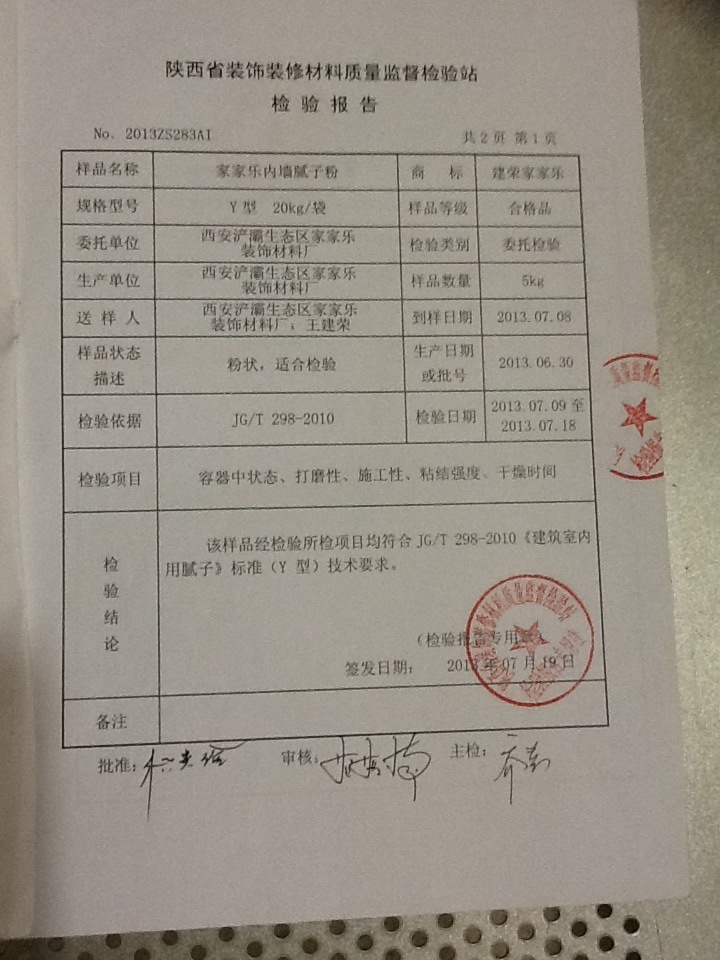 陕西省装饰装修材料质量监督检验站
检 验 报 告
No. 2013ZS283AI 共 2 页 第 1 页
样品名称 家家乐内墙腻子粉 商 标 建荣家家乐
规格型号 Y 型 20kg/袋 样品等级 合格品
委托单位 西安浐灞生态区家家乐
装饰材料厂 检验类别 委托检验
生产单位 西安浐灞生态区家家乐
装饰材料厂 样品数量 5kg
送 样 人 西安浐灞生态区家家乐
装饰材料厂：王建荣 到样日期 2013.07.08
样品状态
描述 粉状，适合检验 生产日期
或批号 2013.06.30
检验依据 JG/T 298-2010 检验日期 2013.07.09 至
2013.07.18
检验项目 容器中状态、打磨性、施工性、粘结强度、干燥时间
检
验
结
论
该样品经检验所检项目均符合 JG/T 298-2010《建筑室内
用腻子》标准（Y 型）技术要求。
（检验报告专用章）
签发日期： 2013 年 07 月 19 日
备注
批准： 审核： 主检：